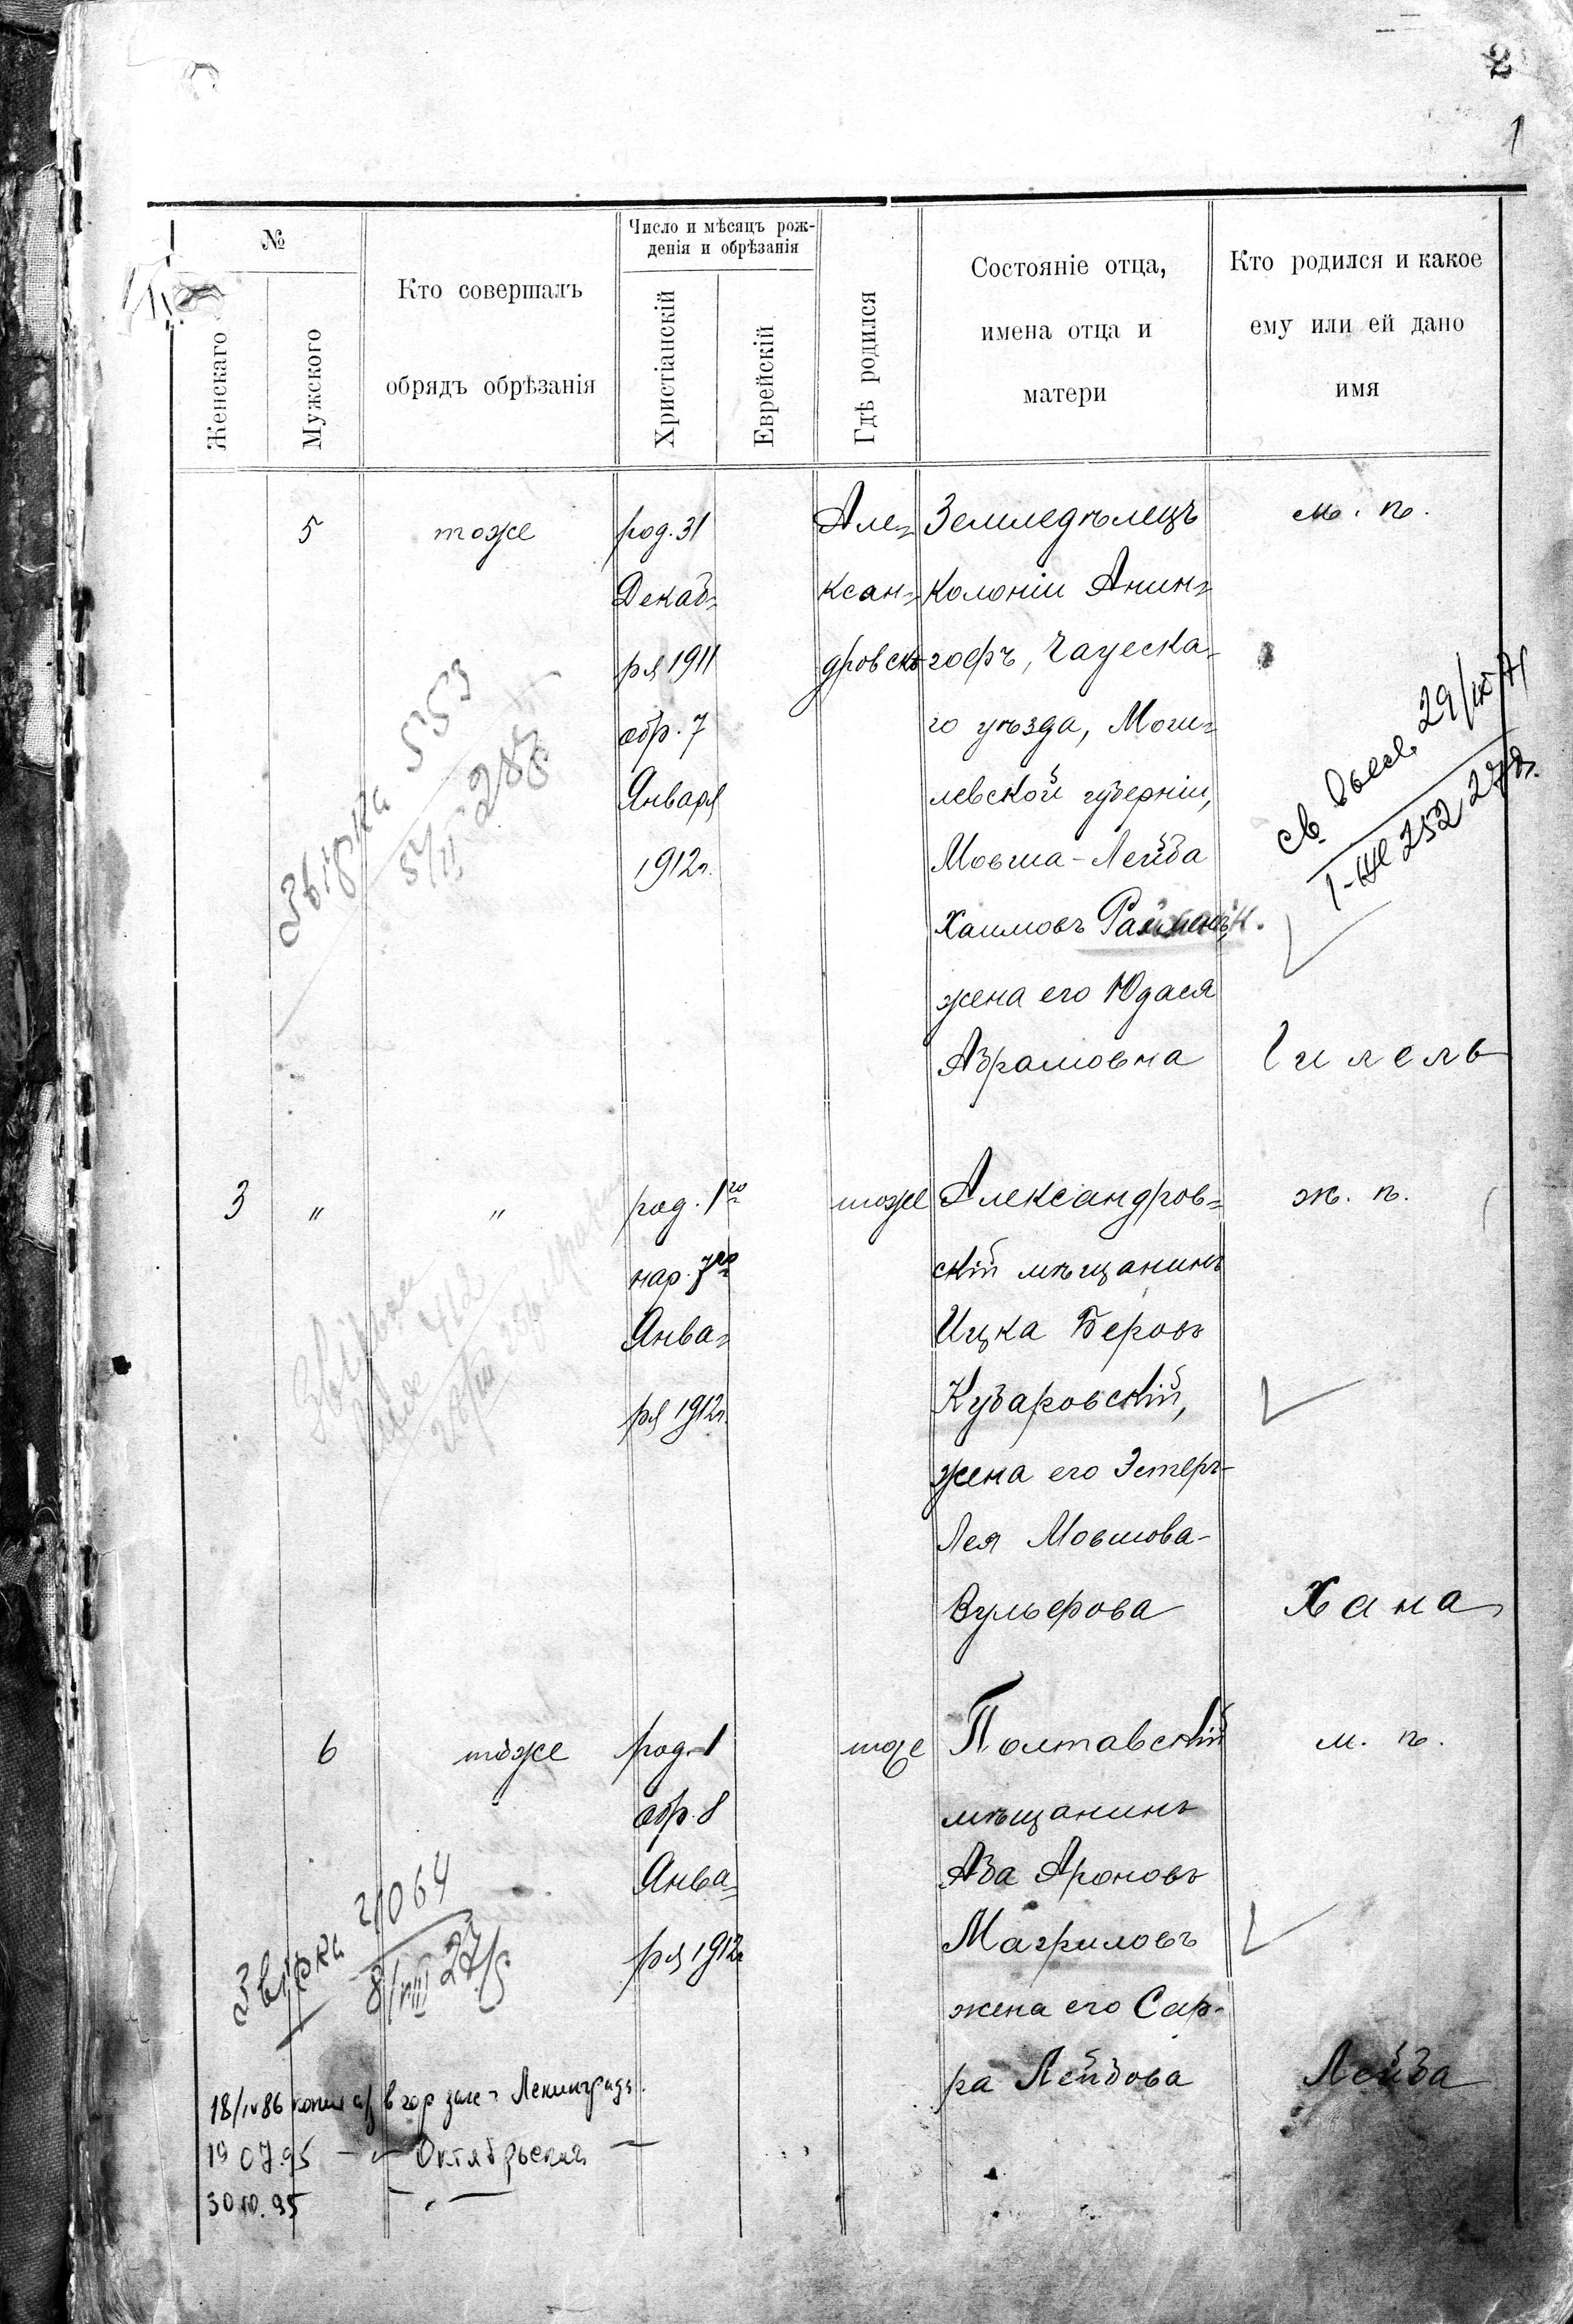 2
1
№
Женскаго
Мужского
Кто совершалъ
обрядъ обрѣзанія
Число и мѣсяцъ рож-
денія и обрѣзанія
Христіанскій
Еврейскій
Гдѣ родился
Состояніе отца,
имена отца и
матери
Кто родился и какое
ему или ей дано
имя
5
тоже
род. 31
Декаб=
ря 1911
обр. 7
Января
1912г.
Але=
ксан=
дровскъ
Земледѣлецъ
Колоніи Анин=
гофъ, Чауска-
го уѣзда, Моги=
левской губерніи,
Мовша-Лейба
Хаимовъ
жена его Юдася
Абрамовна
м. п.
Гилель
Звірка 553
св. 29/IX
252
3
"
"
род. 1го
нар. 7го
Янва=
ря 1912г.
тоже
Александров=
скій мѣщанинъ
Ицка Беровъ
Кубаровскій,
жена его Эстеръ-
Лея Мовшова-
Вульфова
ж. п.
Хана
6
тоже
род. 1
обр. 8
Янва=
ря 1912г
тоже
Полтавскій
мѣщанинъ
Аба Ароновъ
Магриловъ
жена его Сар-
ра Лейбова
м. п.
Лейба
Звірка 21064
8/VIII 27/5
18/IV 86 копия а/з в гор загс г Ленинграда.
19 07.95 — " — Октябрьский —
30.10.95 — " —